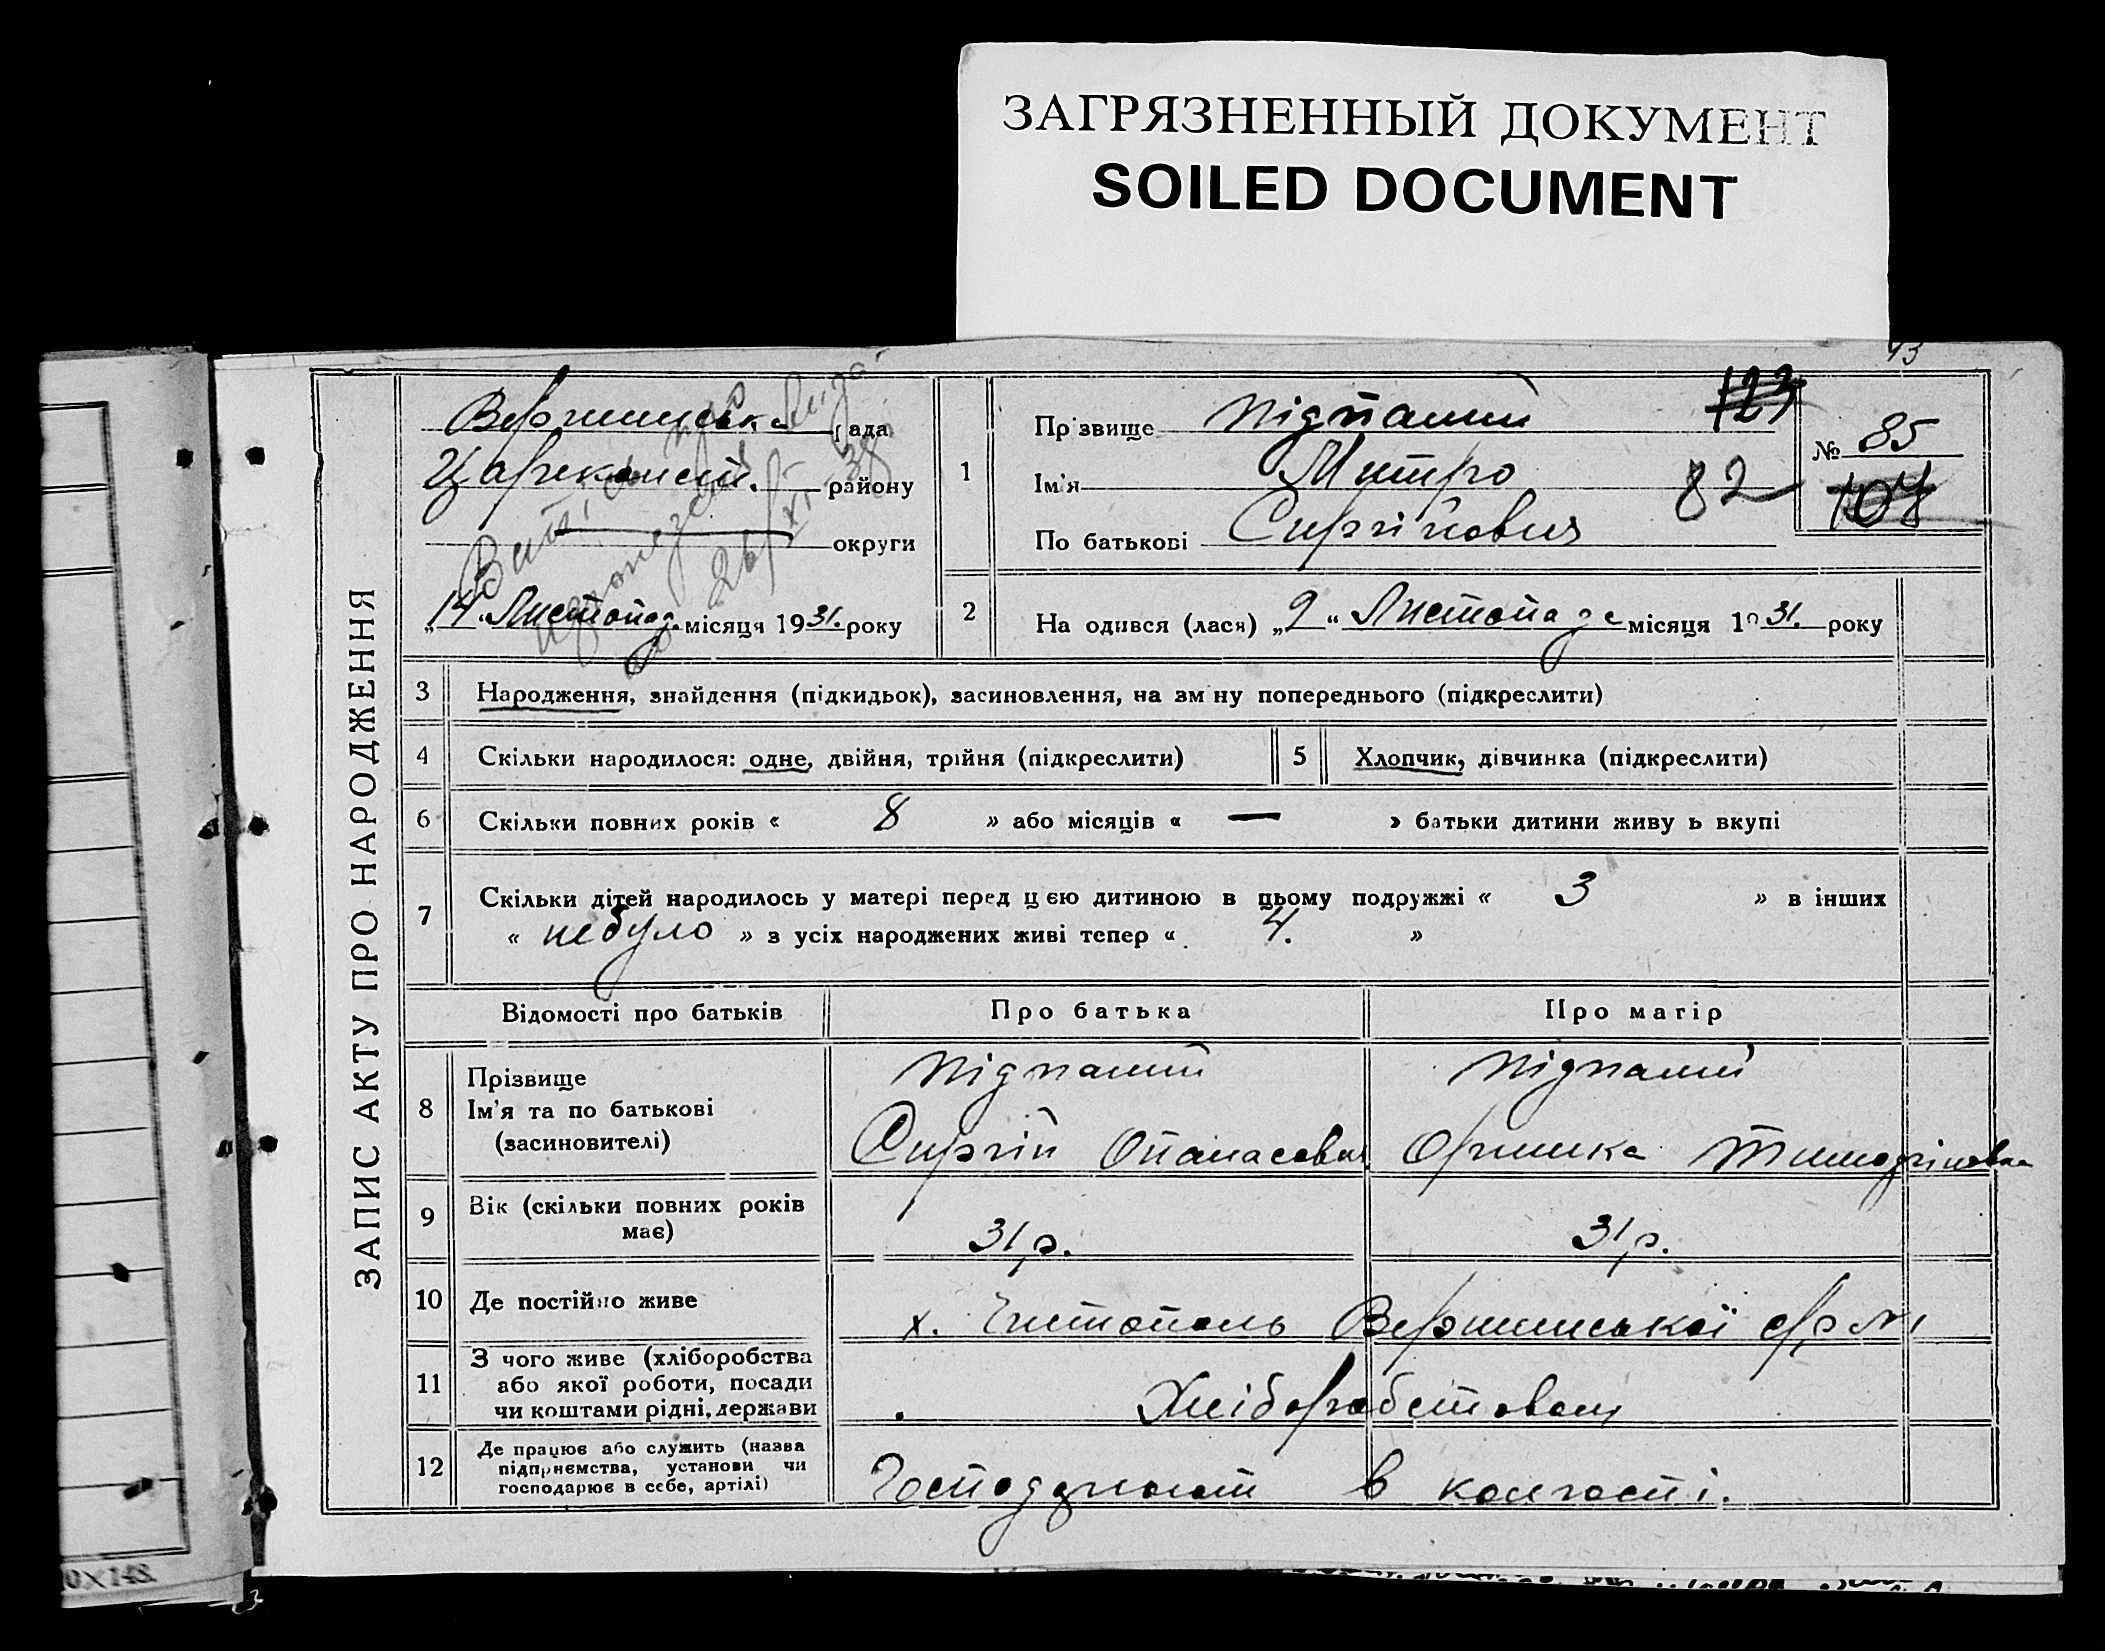 ЗАГРЯЗНЕННЫЙ ДОКУМЕНТ
SOILED DOCUMENT
93
ЗАПИС АКТУ ПРО НАРОДЖЕННЯ
Вершинська рада
Царичанськ. району
округи
26/XI 38
„14“ Листопад. місяця 1931. року
1
Прізвище Підпалий
Ім'я Митро
По батькові Сиргійович
123
82
№ 85
107
2
На одився (лася) „9“ Листопаде місяця 1931. року
3 Народження, знайдення (підкидьок), засиновлення, на зм ну попереднього (підкреслити)
4 Скільки народилося: одне, двійня, трійня (підкреслити)
5 Хлопчик, дівчинка (підкреслити)
6 Скільки повних років « 8 » або місяців « — » батьки дитини живу ь вкупі
7 Скільки дітей народилось у матері перед цією дитиною в цьому подружжі « 3 » в інших
« небуло » з усіх народжених живі тепер « 4. »
Відомості про батьків Про батька Про матір
8 Прізвище
Ім'я та по батькові
(засиновителі)
Підпалий
Сиргій Опанасович
Підпалий
Оришка Тимофіївна
9 Вік (скільки повних років
має)
31 р. 31 р.
10 Де постійно живе х. Чистополь Вершинської с/р
11 З чого живе (хліборобства
або якої роботи, посади
чи коштами рідні, держави
Хліборобством
12 Де працює або служить (назва
підприємства, установи чи
господарює в себе, артілі)
в колгоспі.
0×148.